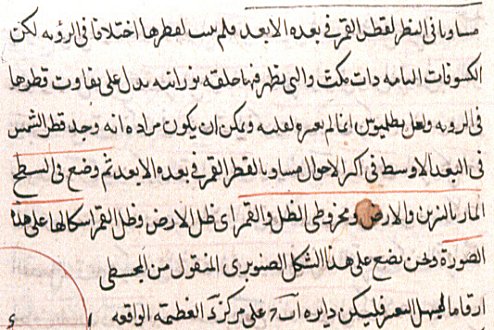 مساويا فى النظر لقطر القمر فى بعده الابعد فلم يثبت لقطرها اختلافا فى الرؤيه لكن
الكسوفات التامه ذات مكث والتى يظهر فيها حلقه نورانيه يدل على تفاوت قطرها
فى الرويه ولعل بطلميوس انما لم يعتبره لقلته ويمكن ان يكون مراده انه وجد قطر الشمس
فى البعد الاوسط فى اكثر الاحوال مساويا لقطر القمر فى بعده الابعد ثم وضع فى السطح
المار بالنيرين والارض ومخروطى الظل والقمر اى ظل الارض وظل القمر اشكالها على هذه
الصورة ونحن نضع على هذا الشكل الصنوبرى المنقول من المجسطى
ارقاما فليكن دايره على مركز العظيمه الواقعه